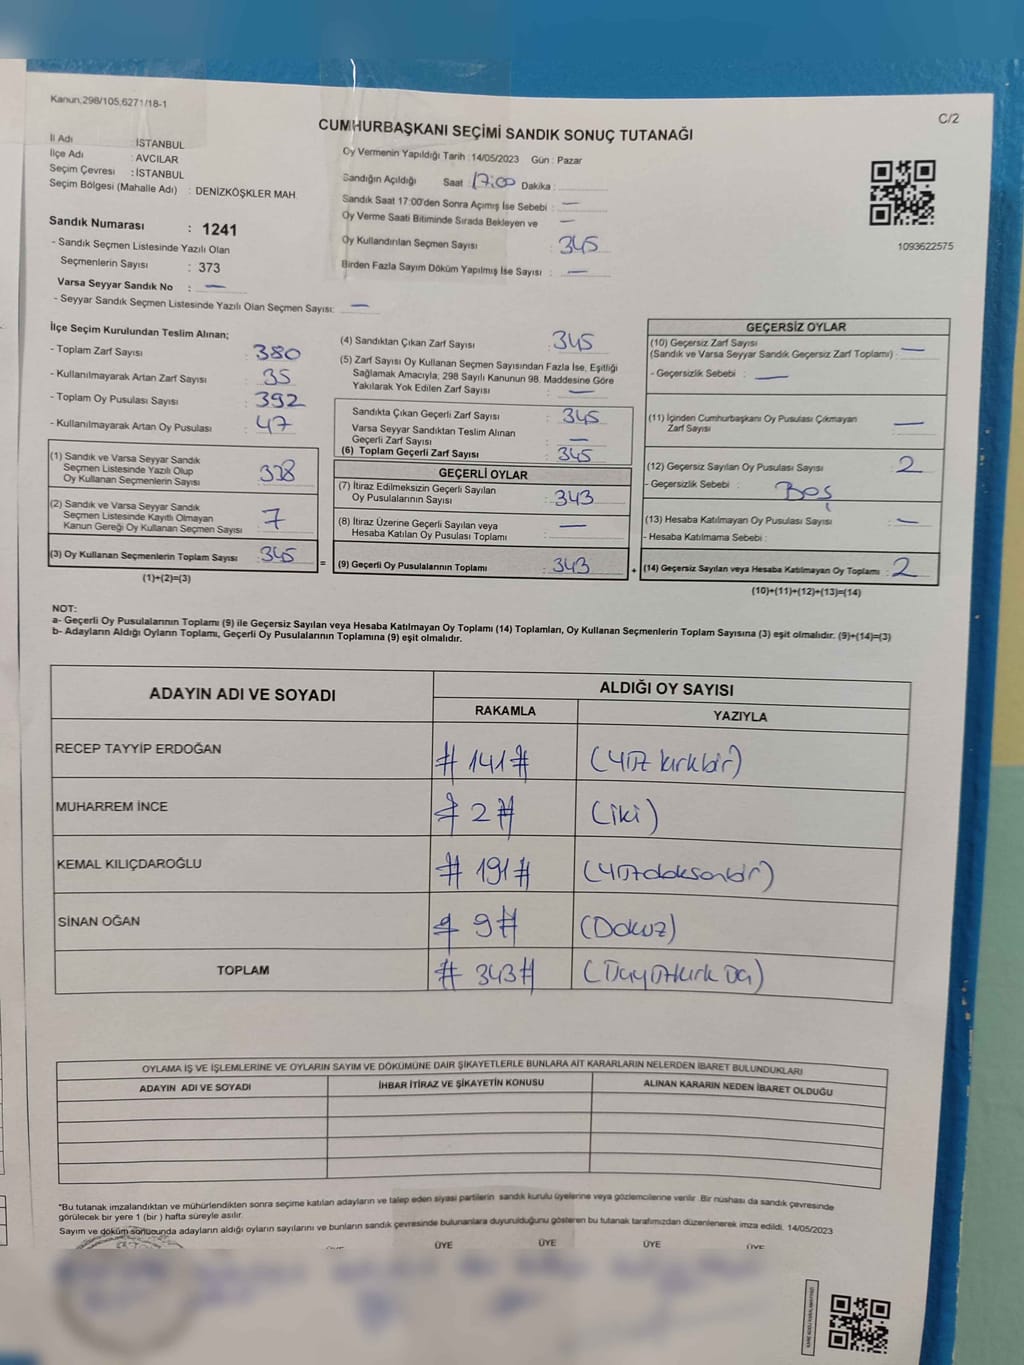 Kanun,298/105,6271/18-1
C/2
CUMHURBAŞKANI SEÇİMİ SANDIK SONUÇ TUTANAĞI
İl Adı : İSTANBUL
İlçe Adı : AVCILAR
Seçim Çevresi : İSTANBUL
Seçim Bölgesi (Mahalle Adı) : DENİZKÖŞKLER MAH
Sandık Numarası : 1241
- Sandık Seçmen Listesinde Yazılı Olan
Seçmenlerin Sayısı : 373
Varsa Seyyar Sandık No : —
- Seyyar Sandık Seçmen Listesinde Yazılı Olan Seçmen Sayısı: —
Oy Vermenin Yapıldığı Tarih : 14/05/2023 Gün : Pazar
Sandığın Açıldığı Saat 17:00 Dakika :
Sandık Saat 17:00'den Sonra Açımış İse Sebebi : —
Oy Verme Saati Bitiminde Sırada Bekleyen ve —
Oy Kullandırılan Seçmen Sayısı : 345
Birden Fazla Sayım Döküm Yapılmış İse Sayısı : —
1093622575
İlçe Seçim Kurulundan Teslim Alınan;
- Toplam Zarf Sayısı : 380
- Kullanılmayarak Artan Zarf Sayısı : 35
- Toplam Oy Pusulası Sayısı : 392
- Kullanılmayarak Artan Oy Pusulası : 47
(1) Sandık ve Varsa Seyyar Sandık
Seçmen Listesinde Yazılı Olup
Oy Kullanan Seçmenlerin Sayısı : 338
(2) Sandık ve Varsa Seyyar Sandık
Seçmen Listesinde Kayıtlı Olmayan
Kanun Gereği Oy Kullanan Seçmen Sayısı : 7
(3) Oy Kullanan Seçmenlerin Toplam Sayısı : 345
(1)+(2)=(3)
(4) Sandıktan Çıkan Zarf Sayısı : 345
(5) Zarf Sayısı Oy Kullanan Seçmen Sayısından Fazla İse, Eşitliği
Sağlamak Amacıyla; 298 Sayılı Kanunun 98. Maddesine Göre
Yakılarak Yok Edilen Zarf Sayısı : —
Sandıkta Çıkan Geçerli Zarf Sayısı : 345
Varsa Seyyar Sandıktan Teslim Alınan
Geçerli Zarf Sayısı : —
(6) Toplam Geçerli Zarf Sayısı : 345
GEÇERLİ OYLAR
(7) İtiraz Edilmeksizin Geçerli Sayılan
Oy Pusulalarının Sayısı : 343
(8) İtiraz Üzerine Geçerli Sayılan veya
Hesaba Katılan Oy Pusulası Toplamı : —
= (9) Geçerli Oy Pusulalarının Toplamı : 343
GEÇERSİZ OYLAR
(10) Geçersiz Zarf Sayısı
(Sandık ve Varsa Seyyar Sandık Geçersiz Zarf Toplamı) : —
- Geçersizlik Sebebi : —
(11) İçinden Cumhurbaşkanı Oy Pusulası Çıkmayan
Zarf Sayısı : —
(12) Geçersiz Sayılan Oy Pusulası Sayısı : 2
- Geçersizlik Sebebi : Boş
(13) Hesaba Katılmayan Oy Pusulası Sayısı : —
- Hesaba Katılmama Sebebi :
+ (14) Geçersiz Sayılan veya Hesaba Katılmayan Oy Toplamı : 2
(10)+(11)+(12)+(13)=(14)
NOT:
a- Geçerli Oy Pusulalarının Toplamı (9) ile Geçersiz Sayılan veya Hesaba Katılmayan Oy Toplamı (14) Toplamları, Oy Kullanan Seçmenlerin Toplam Sayısına (3) eşit olmalıdır. (9)+(14)=(3)
b- Adayların Aldığı Oyların Toplamı, Geçerli Oy Pusulalarının Toplamına (9) eşit olmalıdır.
ADAYIN ADI VE SOYADI ALDIĞI OY SAYISI
RAKAMLA YAZIYLA
RECEP TAYYİP ERDOĞAN # 141 # (Yüz kırkbir)
MUHARREM İNCE # 2 # (iki)
KEMAL KILIÇDAROĞLU # 191 # (Yüzdoksanbir)
SİNAN OĞAN # 9 # (Dokuz)
TOPLAM # 343 # (Üçyüzkırk üç)
OYLAMA İŞ VE İŞLEMLERİNE VE OYLARIN SAYIM VE DÖKÜMÜNE DAİR ŞİKAYETLERLE BUNLARA AİT KARARLARIN NELERDEN İBARET BULUNDUKLARI
ADAYIN ADI VE SOYADI İHBAR İTİRAZ VE ŞİKAYETİN KONUSU ALINAN KARARIN NEDEN İBARET OLDUĞU
*Bu tutanak imzalandıktan ve mühürlendikten sonra seçime katılan adayların ve talep eden siyasi partilerin sandık kurulu üyelerine veya gözlemcilerine verilir. Bir nüshası da sandık çevresinde
görülecek bir yere 1 (bir) hafta süreyle asılır.
Sayım ve döküm sonucunda adayların aldığı oyların sayılarını ve bunların sandık çevresinde bulunanlara duyurulduğunu gösteren bu tutanak tarafımızdan düzenlenerek imza edildi. 14/05/2023
ÜYE ÜYE ÜYE ÜYE ÜYE